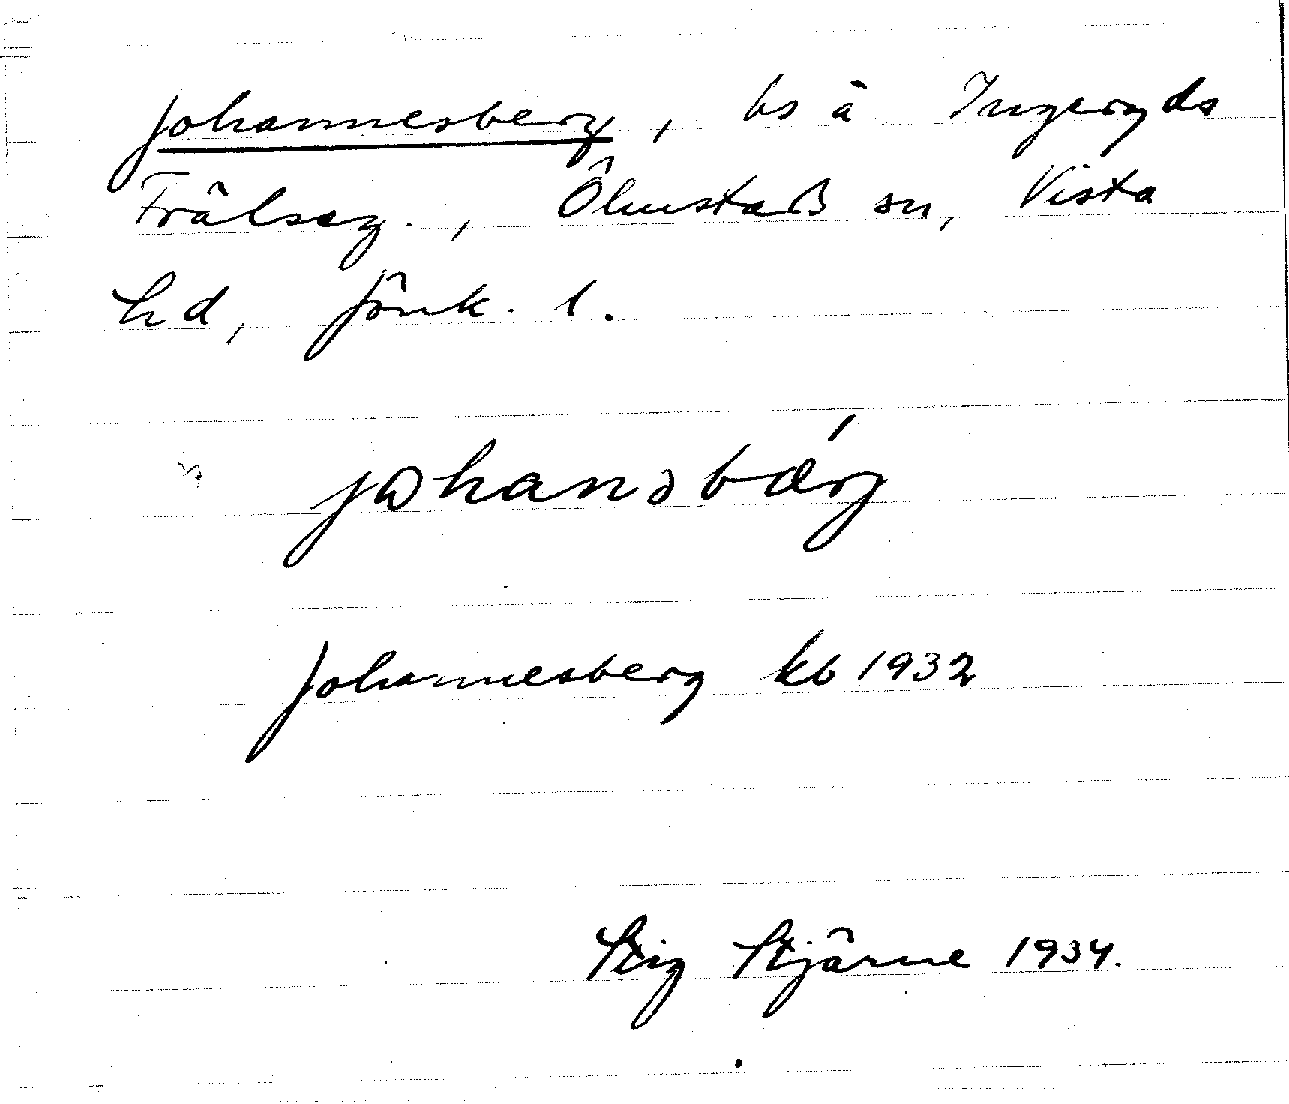 Johannesberg, bs å Ingeryds
Frälseg., Ölmstad sn, Vista
hd, Jönk. l.
johanəsbærj
Johannesberg kb 1932
Stig Stjärne 1934.